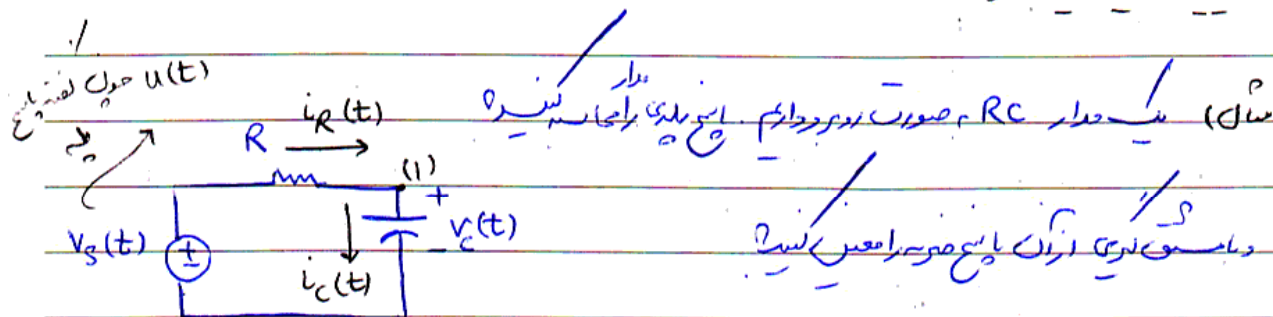 مثال) یک مدار RC به صورت روبرو داریم. پاسخ پله‌ی مدار را محاسبه کنید؟
و با مشتق گیری از آن پاسخ ضربه را معین کنید؟
u(t) چون گفته پاسخ پله
i_R(t)
R
(1)
+
v_c(t)
-
v_s(t)
±
i_c(t)